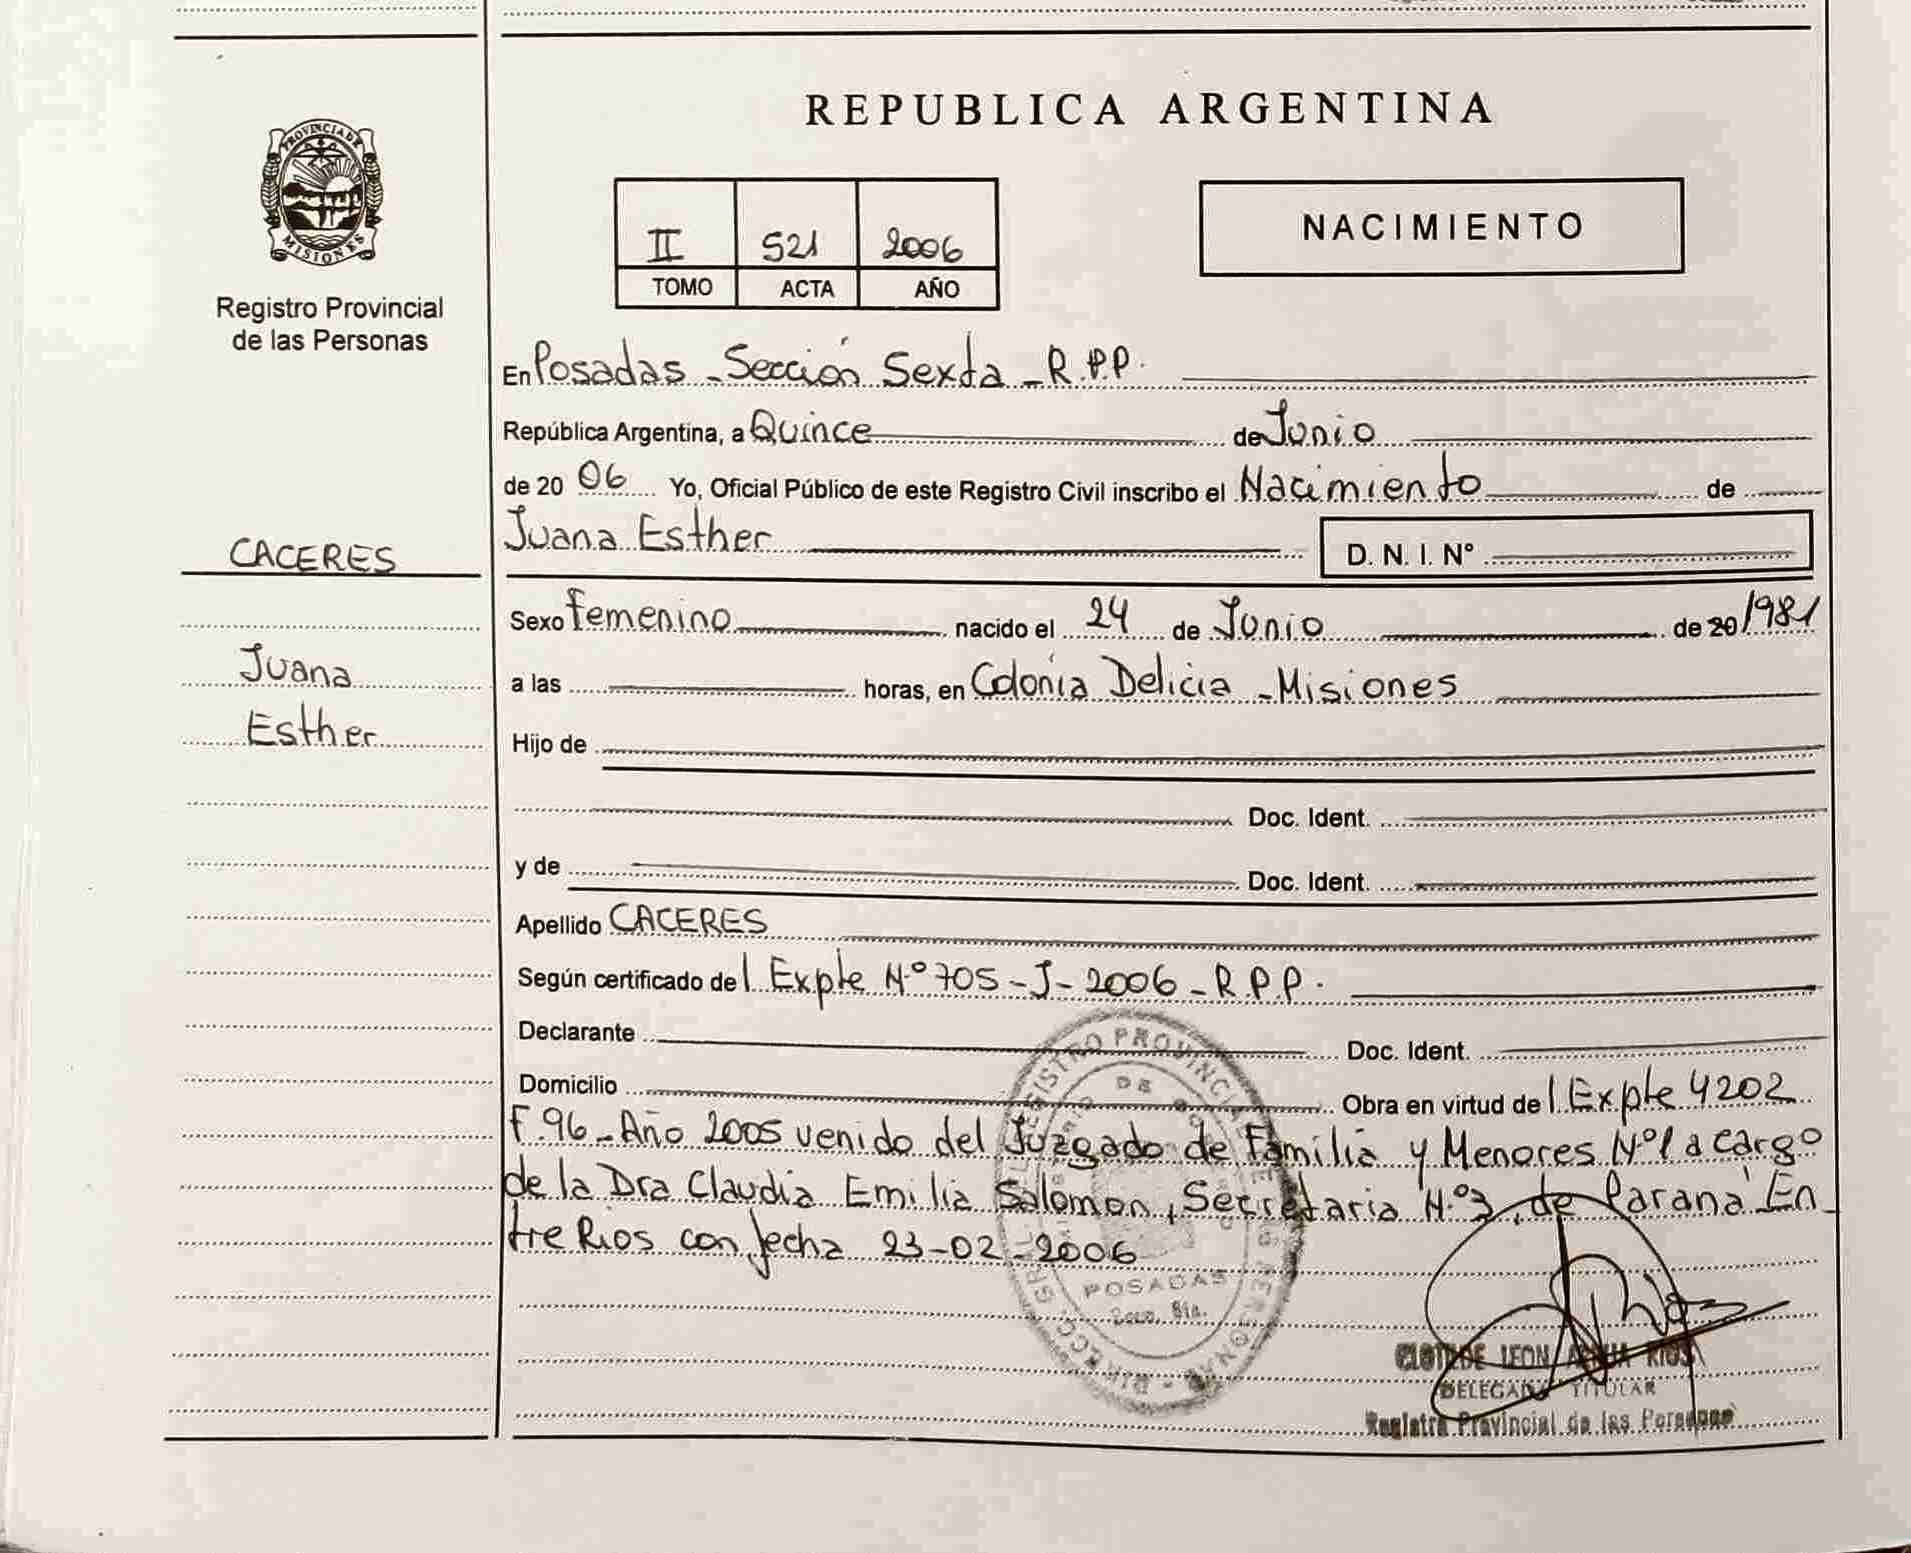 REPUBLICA ARGENTINA
PROVINCIA DE
MISIONES
Registro Provincial
de las Personas
II 521 2006
TOMO ACTA AÑO
NACIMIENTO
En Posadas - Sección Sexta - R.P.P.
República Argentina, a Quince de Junio
de 20 06 Yo, Oficial Público de este Registro Civil inscribo el Nacimiento de
Juana Esther D. N. I. Nº
CACERES
Juana
Esther
Sexo Femenino nacido el 24 de Junio de 20 1981
a las horas, en Colonia Delicia - Misiones
Hijo de
Doc. Ident.
y de Doc. Ident.
Apellido CACERES
Según certificado del Expte Nº 705 - J - 2006 - R.P.P.
Declarante Doc. Ident.
Domicilio Obra en virtud del Expte 4202
F. 96 - Año 2005 venido del Juzgado de Familia y Menores Nº 1 a cargo
de la Dra Claudia Emilia Salomon, Secretaria Nº 3, de Paraná En
tre Rios con fecha 23-02-2006
REGISTRO PROVINCIAL DE
POSADAS
Secc. 6ta.
CLOTILDE LEON RIOS
DELEGADA TITULAR
Registro Provincial de las Personas